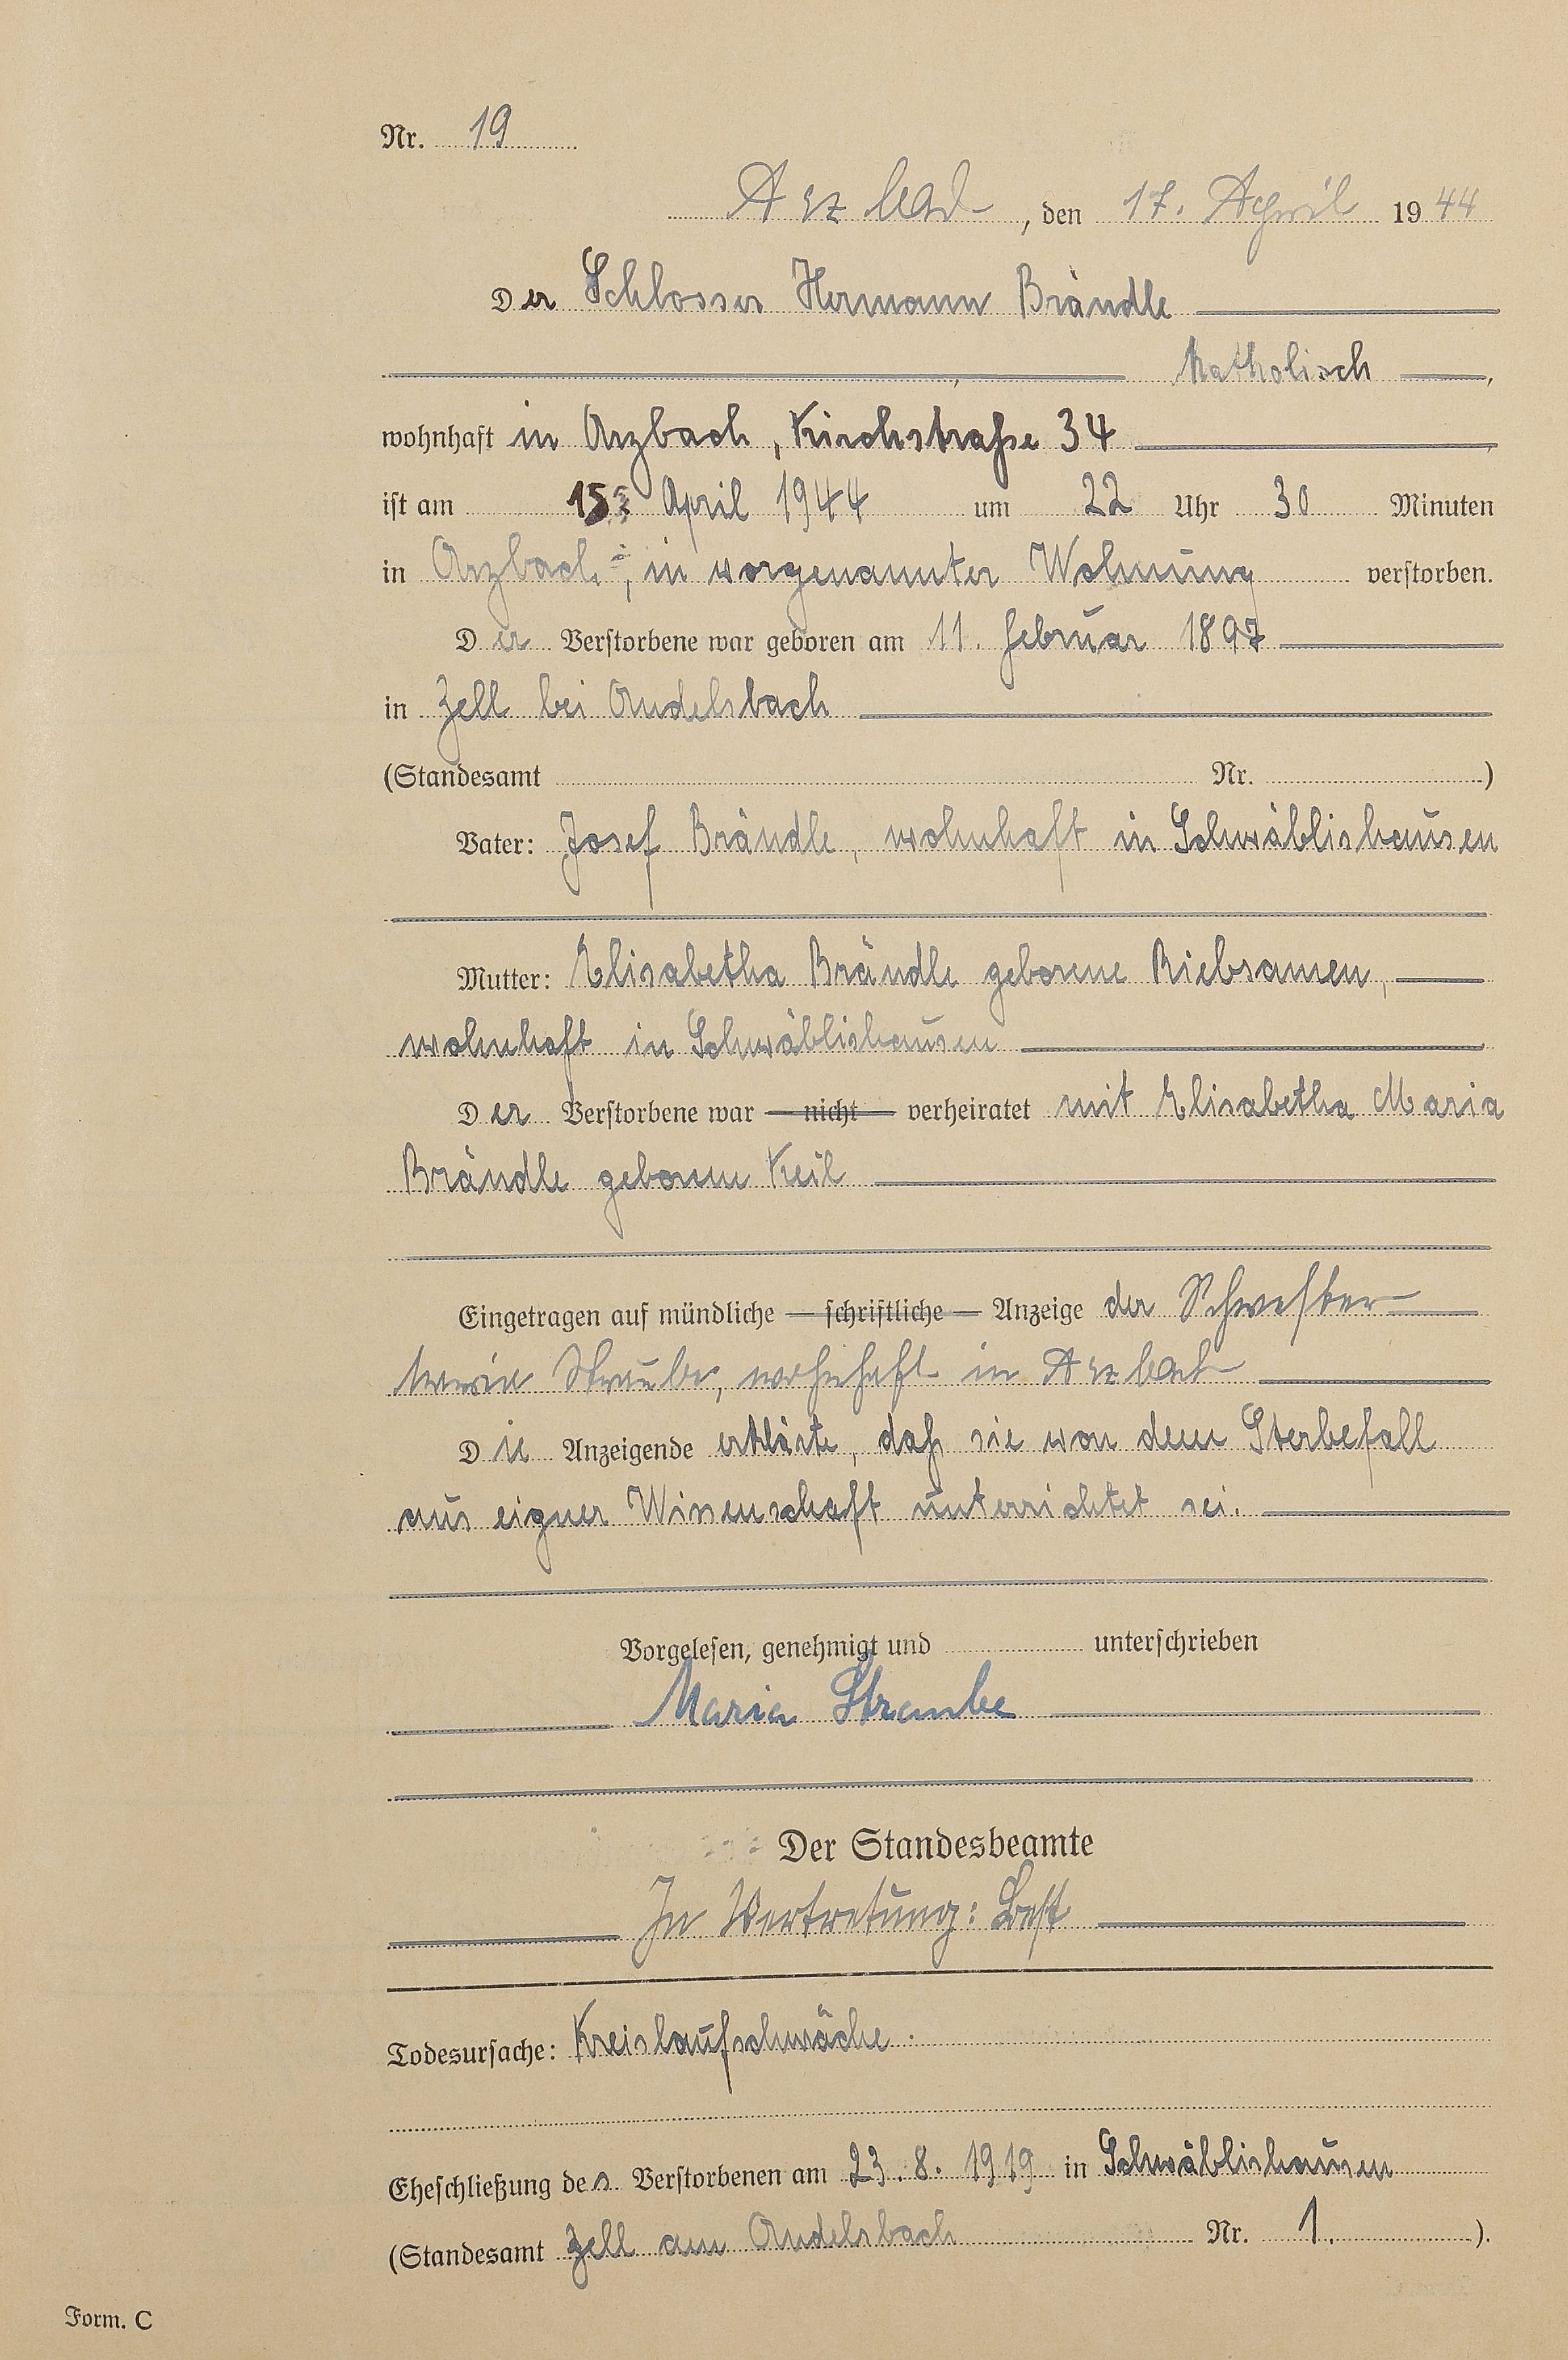 Nr. 19
Arzbach, den 17. April 1944
Der Schlosser Hermann Brändle
katholisch,
wohnhaft in Arzbach, Kirchstraße 34
ist am 15. April 1944 um 22 Uhr 30 Minuten
in Arzbach, in vorgenannter Wohnung verstorben.
Der Verstorbene war geboren am 11. Februar 1897
in Zell bei Andelsbach
(Standesamt Nr. )
Vater: Josef Brändle, wohnhaft in Schwäblishausen
Mutter: Elisabetha Brändle geborene Riebsamen,
wohnhaft in Schwäblishausen
Der Verstorbene war — nicht — verheiratet mit Elisabetha Maria
Brändle geborene Keil
Eingetragen auf mündliche — schriftliche — Anzeige der Schwester
Maria Straube, wohnhaft in Arzbach
Die Anzeigende erklärte, daß sie von dem Sterbefall
aus eigner Wissenschaft unterrichtet sei.
Vorgelesen, genehmigt und unterschrieben
Maria Straube
Der Standesbeamte
In Vertretung: Best
Todesursache: Kreislaufschwäche.
Eheschließung des Verstorbenen am 23.8.1919 in Schwäblishausen
(Standesamt Zell am Andelsbach Nr. 1. ).
Form. C